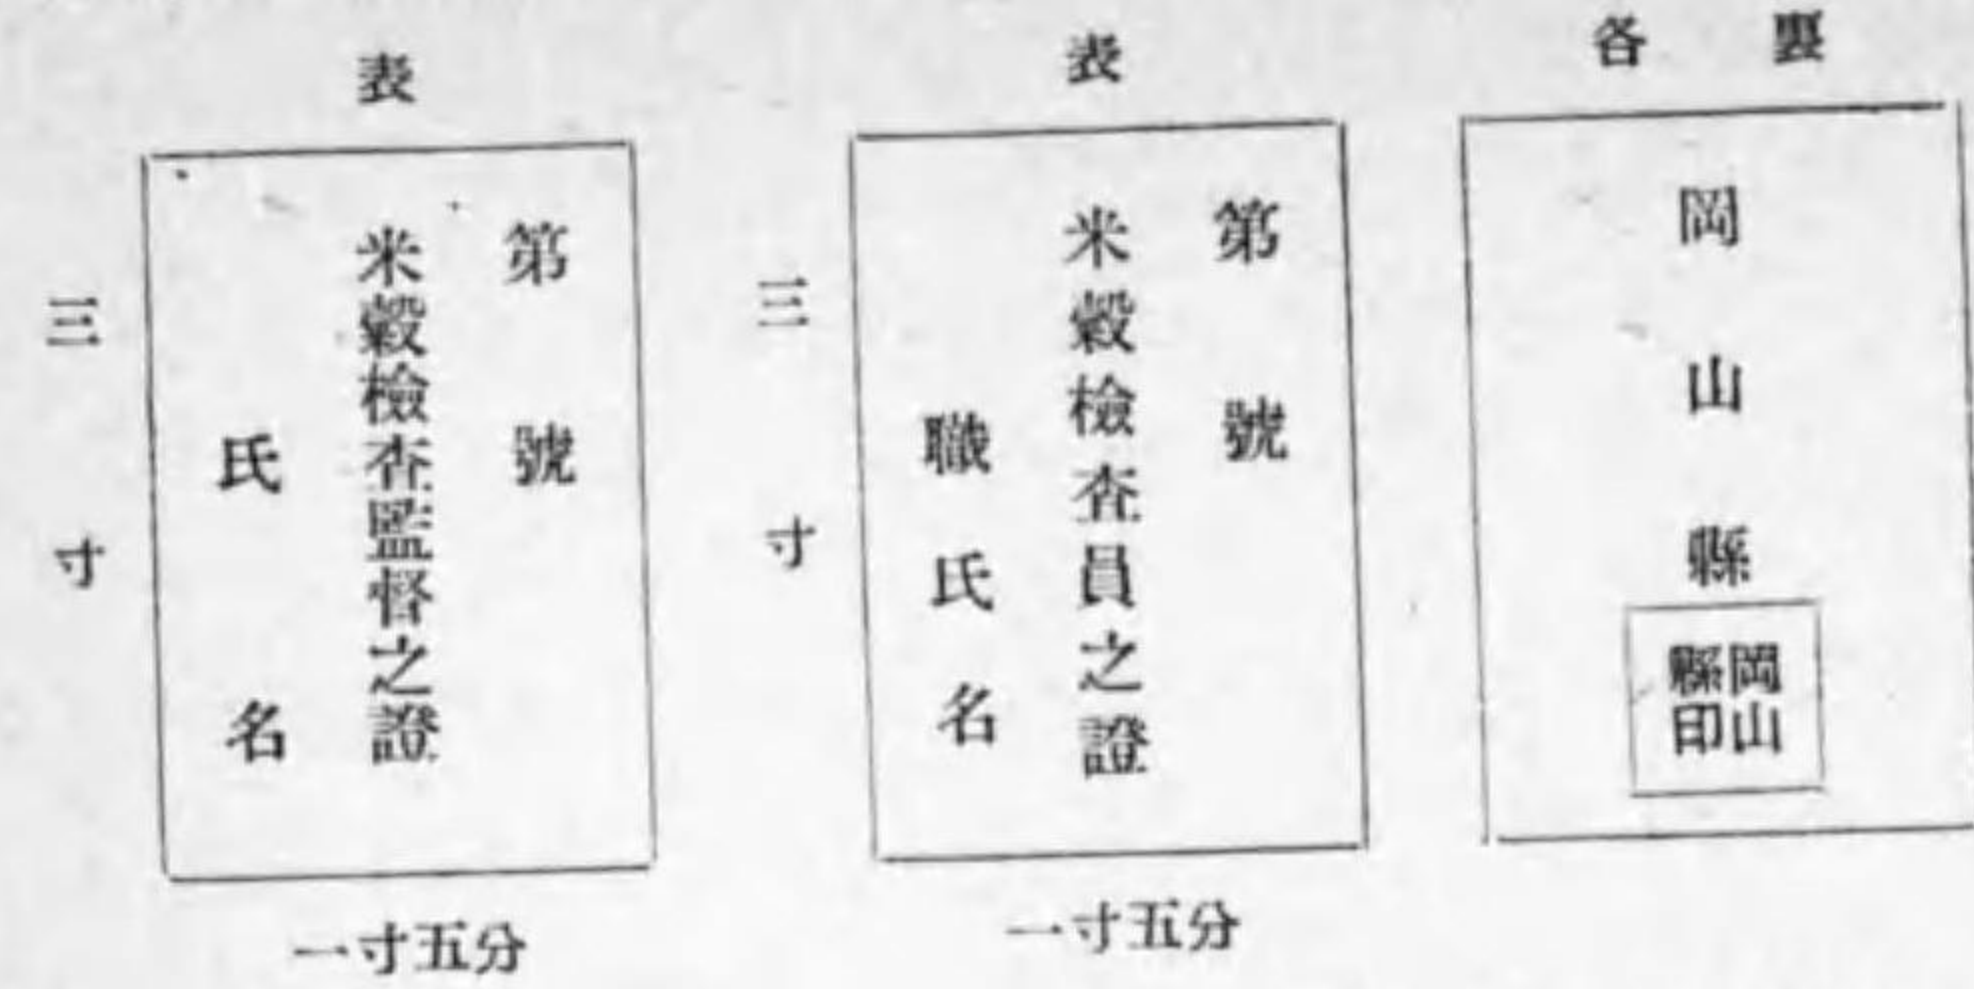 各裏
岡山縣
岡山
縣印
表
第號
米穀檢査員之證
職氏名
三寸
一寸五分
表
第號
米穀檢査監督之證
氏名
三寸
一寸五分